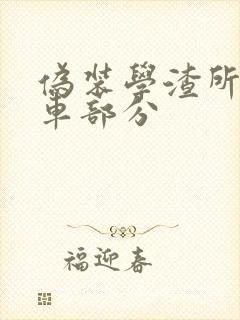 偽裝學渣所
車部分
福迎春